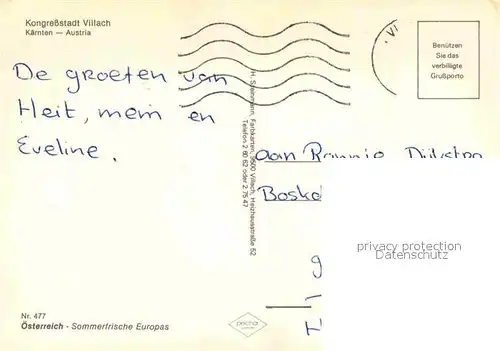 Kongreßstadt Villach
Kärnten — Austria
VI
Benützen
Sie das
verbilligte
Grußporto
De groeten van
Heit, mem en
Eveline.
H. Spermann, Farbkarten, 9500 Villach, Heizhausstraße 52
Telefon 2 60 62 oder 2 75 47
aan
privacy protection
Datenschutz
Nr. 477
Österreich - Sommerfrische Europas